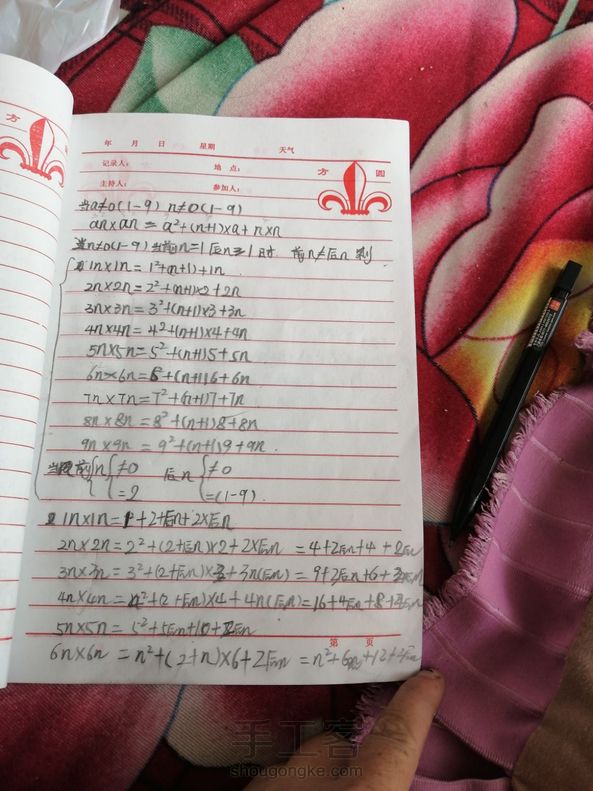 年 月 日 星期 天气
记录人: 地 点:
方 圆
主持人: 参加人:
方
当a≠0(1-9) n≠0(1-9)
an×an = a²+(n+1)×a+n×n
n≠0(1-9) 前n=1 后n≥1时 前n≠后n 则
1n×1n = 1²+(n+1)+1n
2n×2n = 2²+(n+1)×2+2n
3n×3n = 3²+(n+1)×3+3n
4n×4n = 4²+(n+1)×4+4n
5n×5n = 5²+(n+1)5+5n
6n×6n = 6²+(n+1)6+6n
7n×7n = 7²+(n+1)7+7n
8n×8n = 8²+(n+1)8+8n
9n×9n = 9²+(n+1)9+9n
前{n{≠0 后n{≠0
=2 =(1-9)
1n×1n = 1+2+后n+2×后n
2n×2n = 2²+(2+后n)×2+2×后n = 4+2后n+4+2后n
3n×3n = 3²+(2+后n)×3+3n(后n) = 9+3后n+6+后n
4n×4n = 4²+(2+后n)×4+4n(后n) = 16+4后n+8+后n
5n×5n = 5²+5后n+10+后n
第 页
6n×6n = n²+(2+n)×6+2后n = n²+6n+12+后n
手工客
shougongke.com